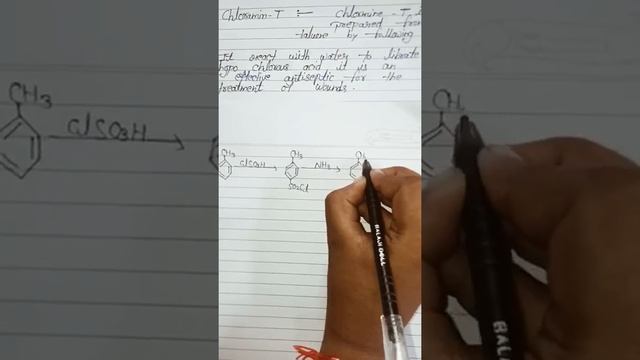 Chloramin-T :- chloramine-T
prepared from
toluene by following
It react with water to librate
hypo chlorous acid it is an
effective antiseptic for the
treatment of wounds.
CH3 CH3 CH
ClSO3H NH3
SO2Cl
CH3
ClSO3H
CH
BALAJI DOLL
BALAJI